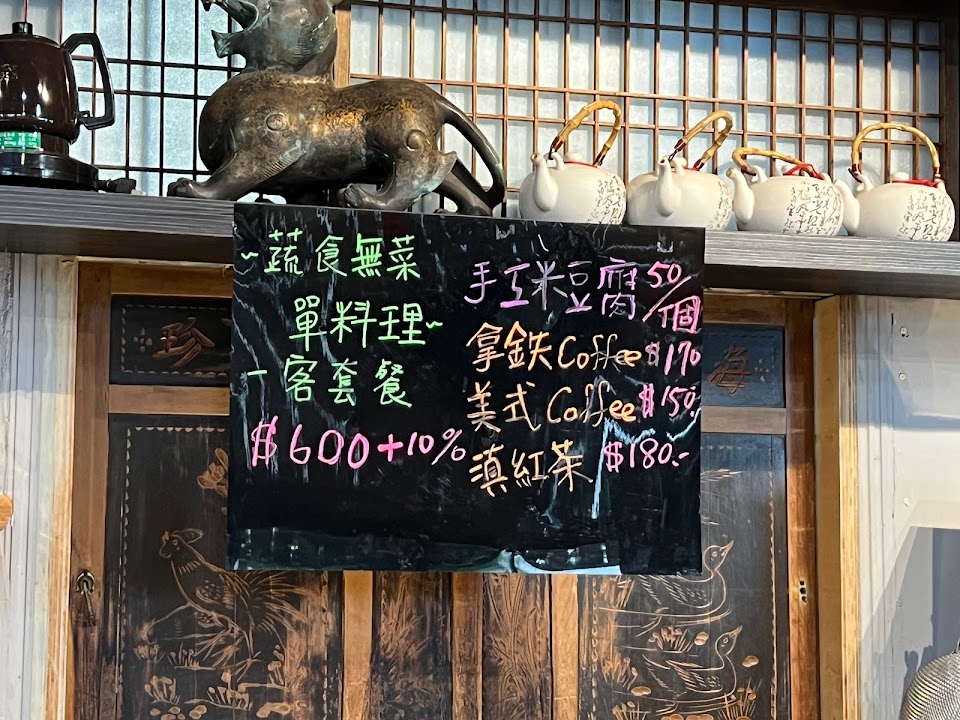 ~蔬食無菜
單料理~
一客套餐
$600+10%
手工米豆腐50/個
拿鉄Coffee $170
美式Coffee $150.
滇紅茶 $180.-
珍
海